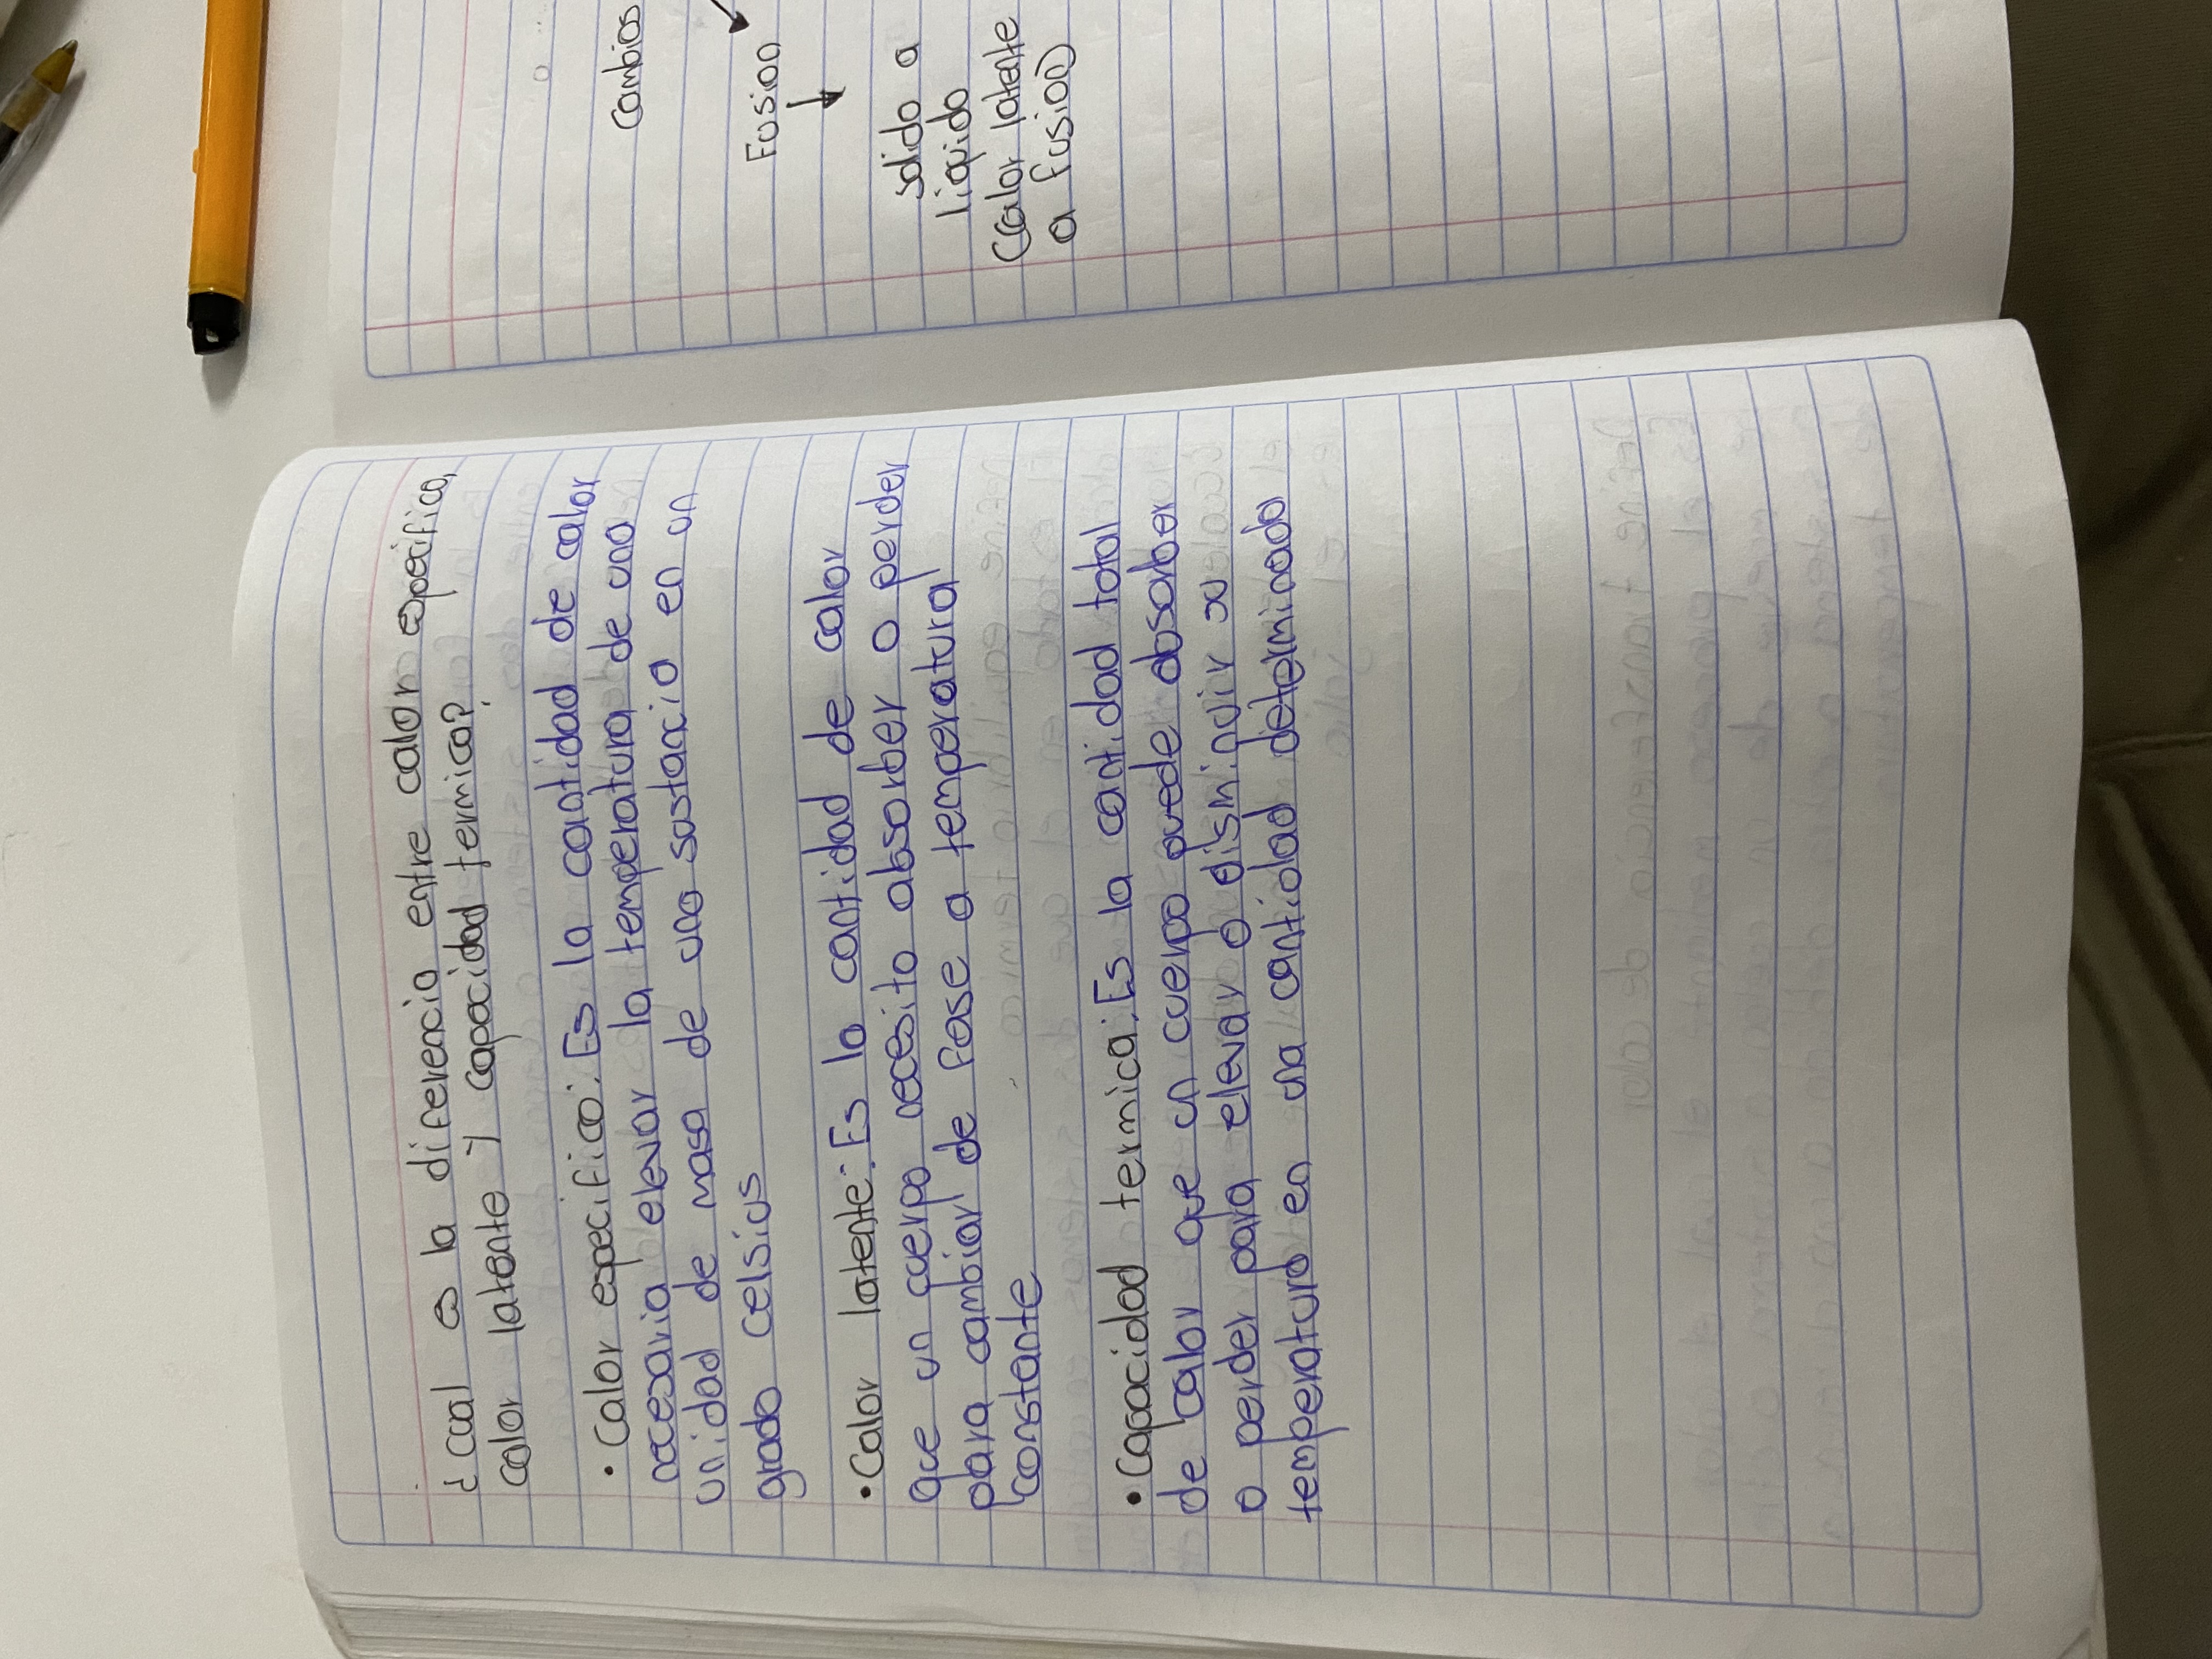 ¿Cual es la diferencia entre calor especifico,
calor latente y capacidad termica?
• Calor especifico: Es la cantidad de calor
necesaria elevar la temperatura de una
unidad de masa de una sustancia en un
grado celsius
• Calor latente: Es la cantidad de calor
que un cuerpo necesita absorber o perder
para cambiar de fase a temperatura
constante
• Capacidad termica: Es la cantidad total
de calor que un cuerpo puede absorber
o perder para elevar o disminuir su
temperatura en una cantidad determinada
Cambios
Fusion
solido a
liquido
(Calor latente
a fusion)